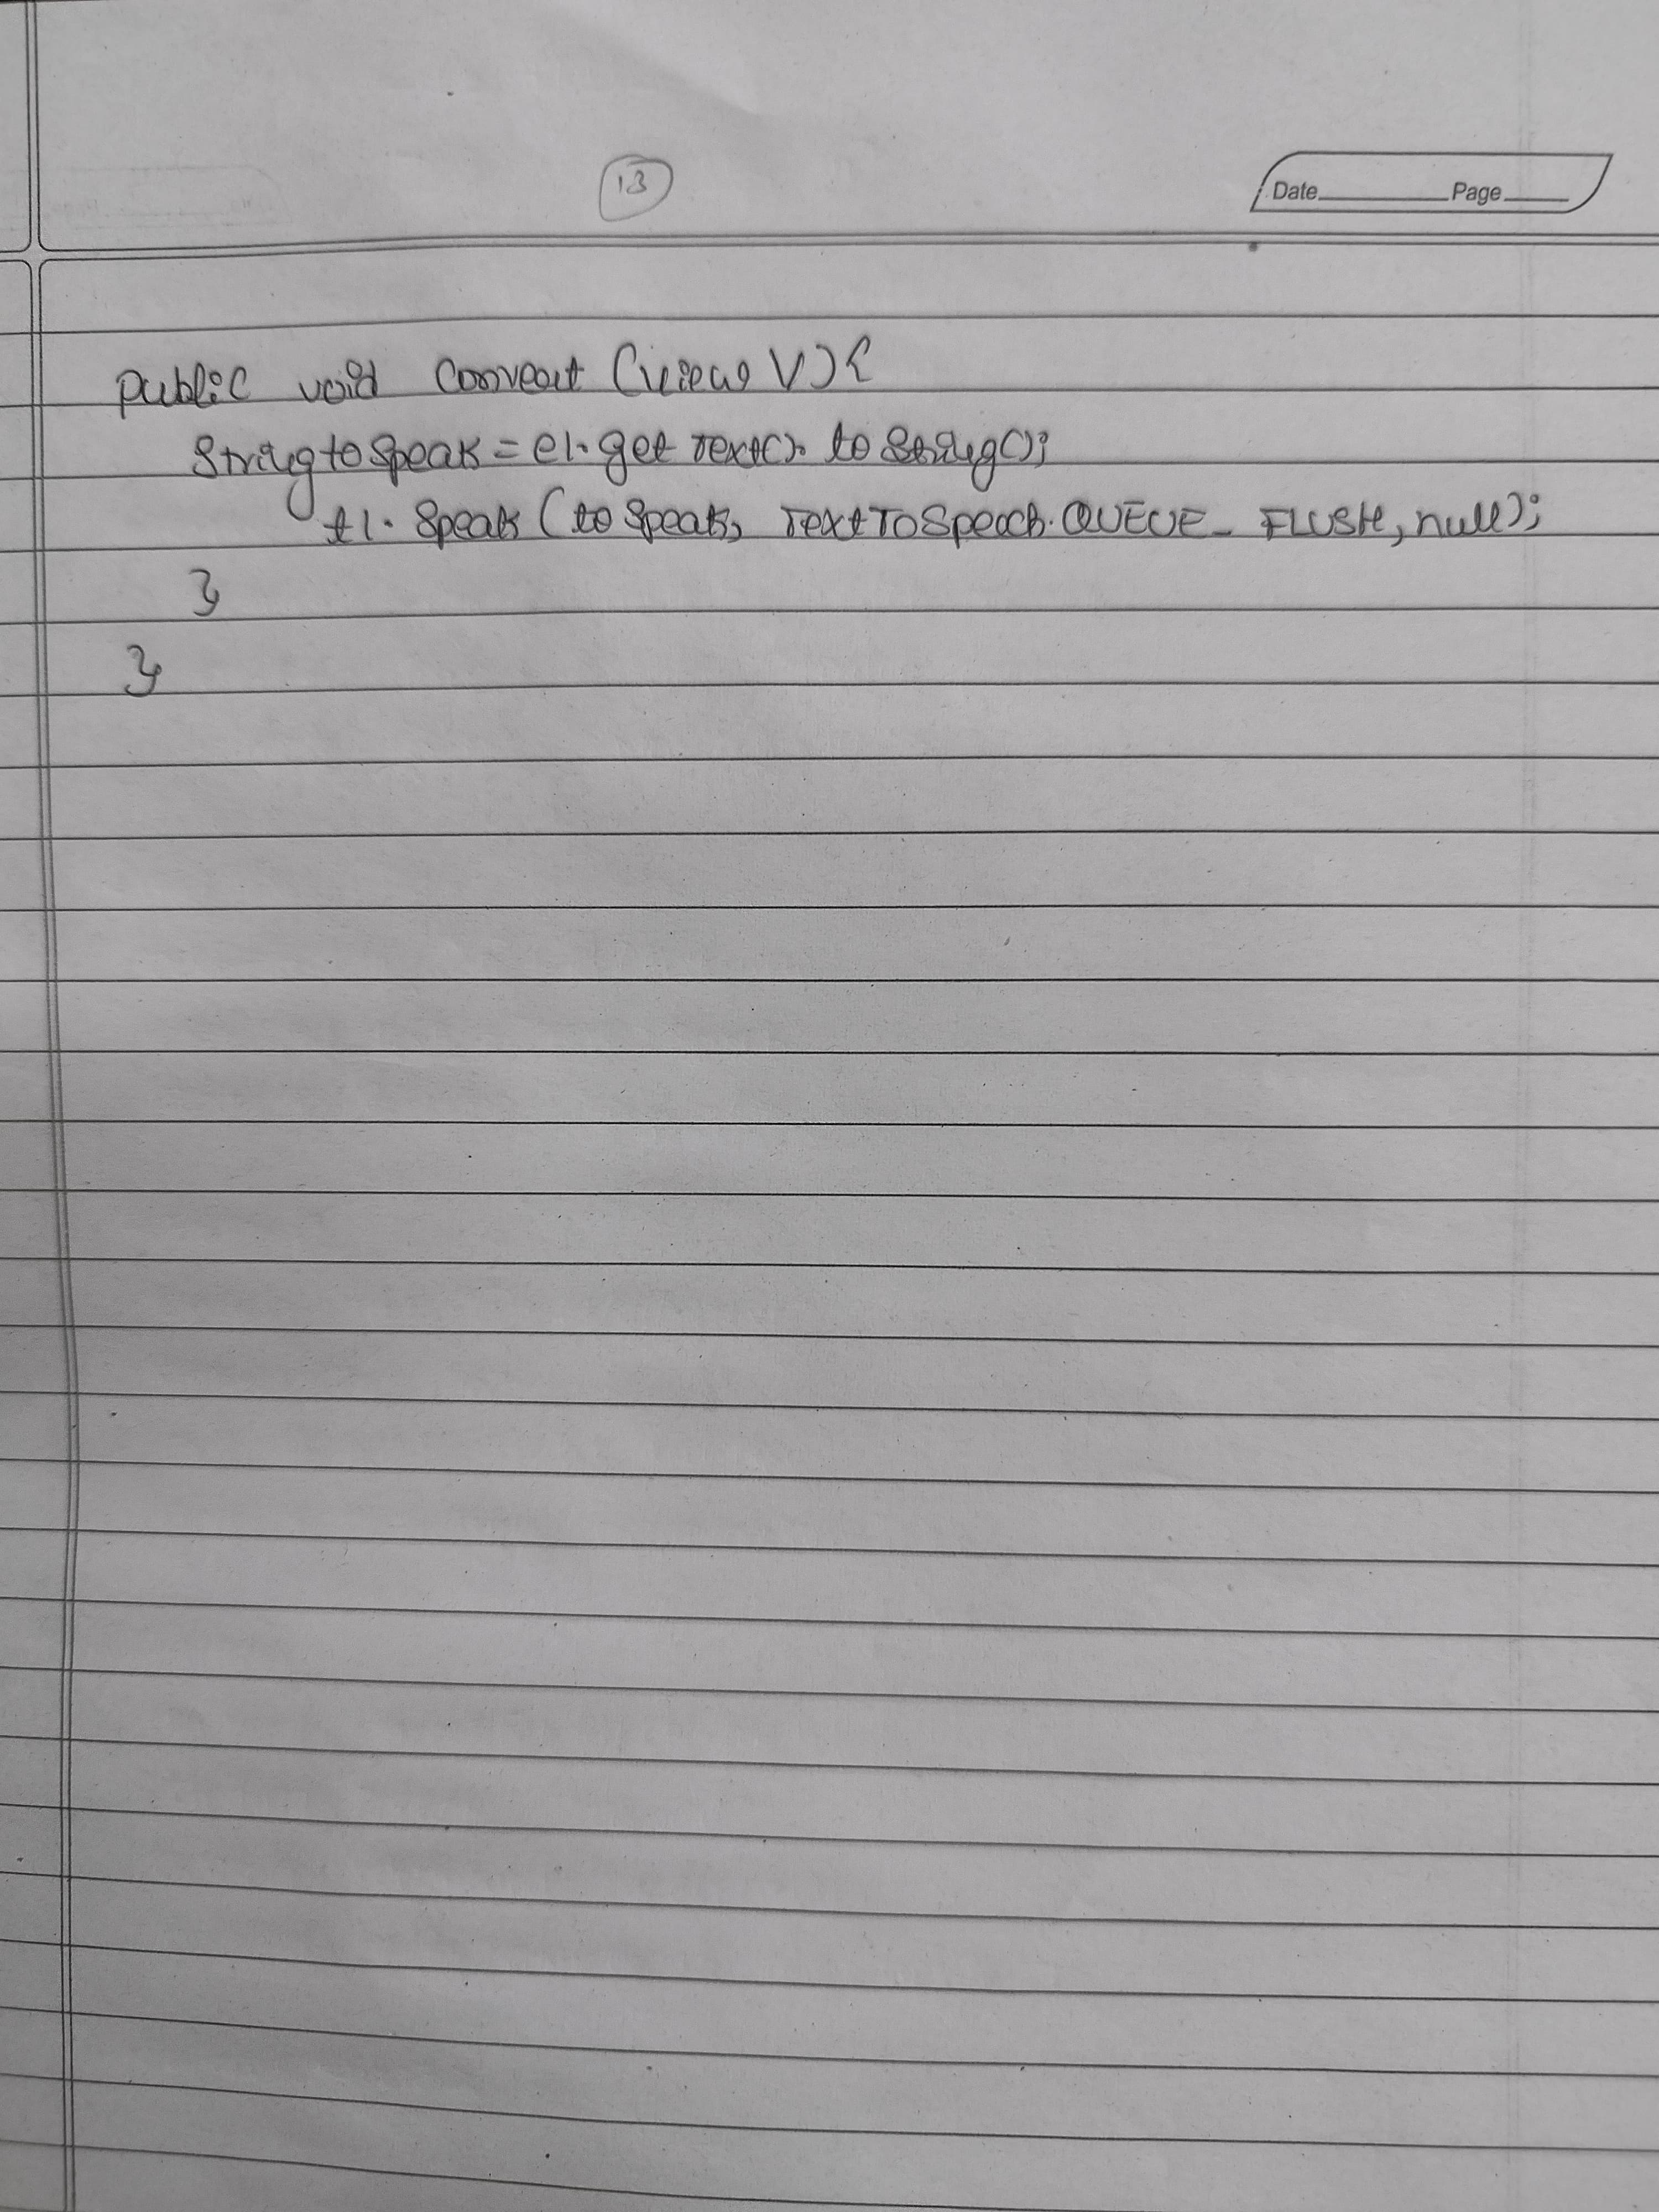 13
Date Page
public void convert (View V){
String to speak = e1. get Text(). to String();
t1. Speak (to speak, Text To Speech. QUEUE_ FLUSH, null);
}
}